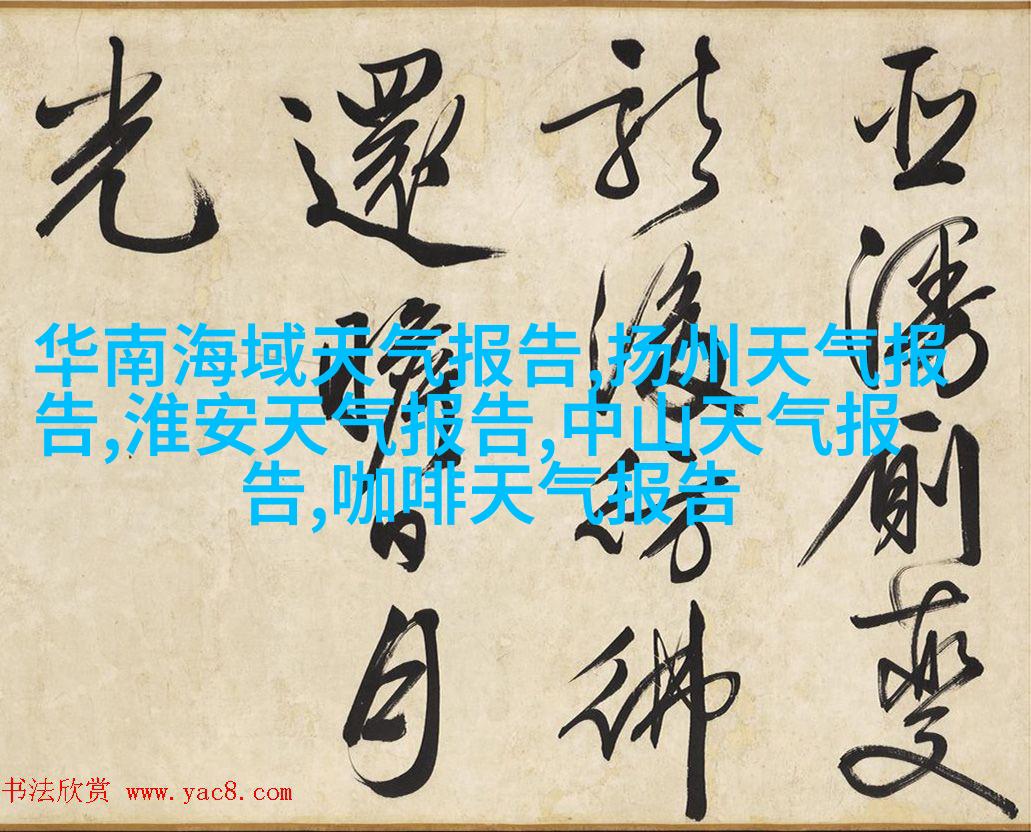 彷彿
還瞻日月
光
华南海域天气报告,扬州天气报
告,淮安天气报告,中山天气报
告,咖啡天气报告
书法欣赏 www.yac8.com